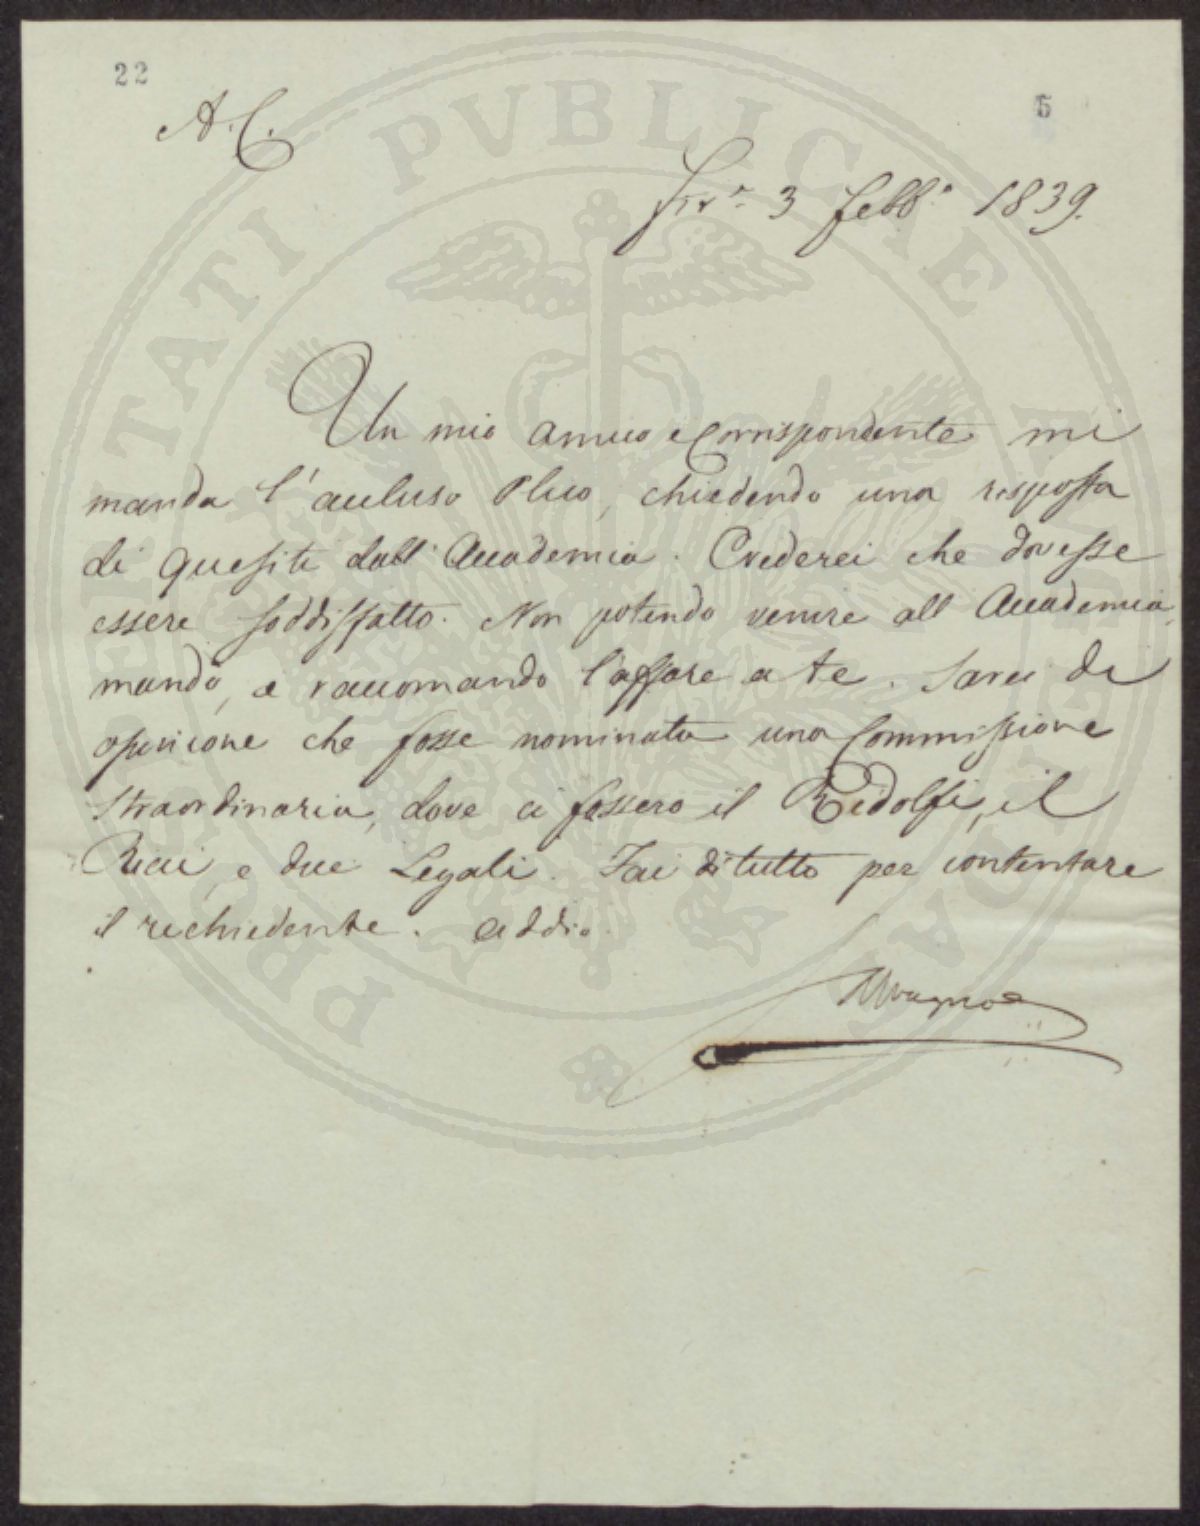 22
5
A. C.
Fir.e 3 Febb.o 1839.
Un mio amico e Corrispondente mi
manda l'accluso Plico, chiedendo una risposta
di Quesiti dall'Accademia. Crederei che dovesse
essere soddisfatto. Non potendo venire all Accademia,
mando, e raccomando l'affare a te. Sarei di
opinione che fosse nominata una Commissione
Straordinaria, dove ci fossero il Ridolfi, il
Ricci, e due Legali. Fai di tutto per contentare
il richiedente. Addio.
PROSPERITATI PVBLICAE AVGENDAE